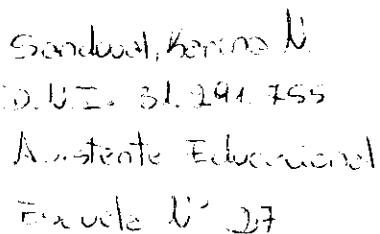 Sandoval, Karina N.
D.N.I. 31.291.755
Asistente Educacional
Escuela N° 27